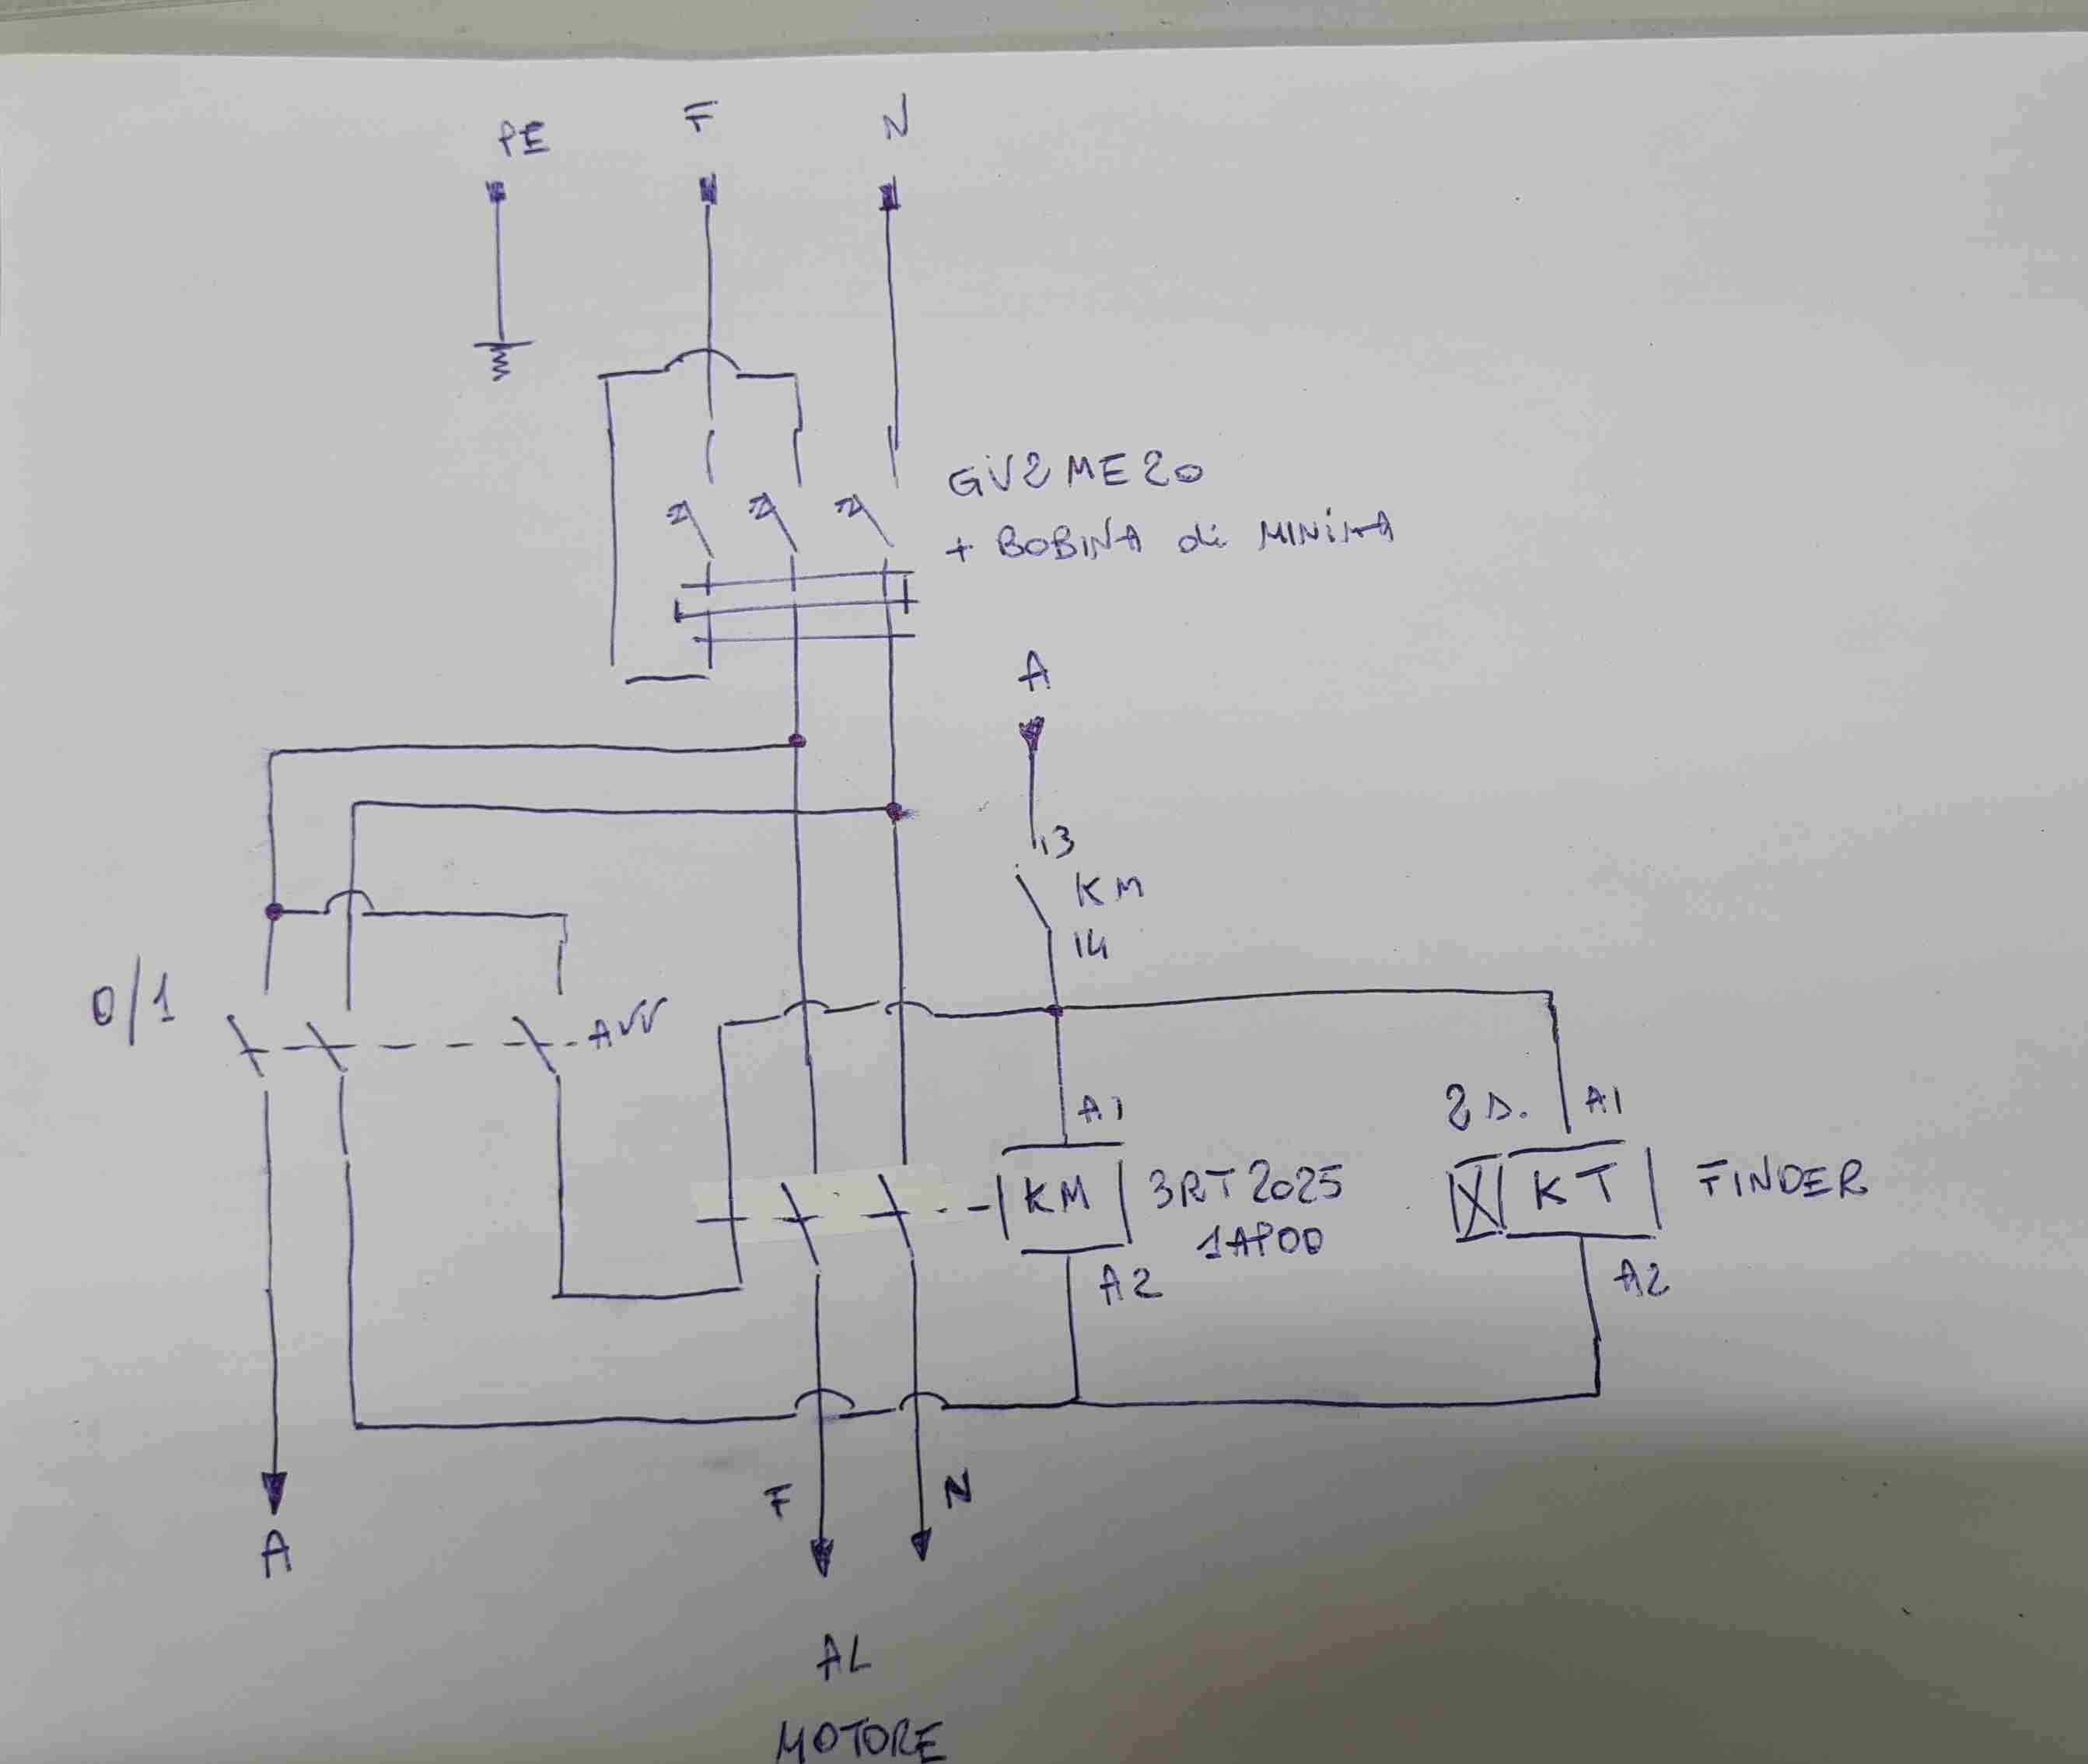 PE
F
N
GV2 ME 20
+ BOBINA di MINIMA
A
13
KM
14
0/1
AVV
A1
2s.
A1
KM
3RT2025
1AP00
KT
FINDER
A2
A2
F
N
A
AL
MOTORE